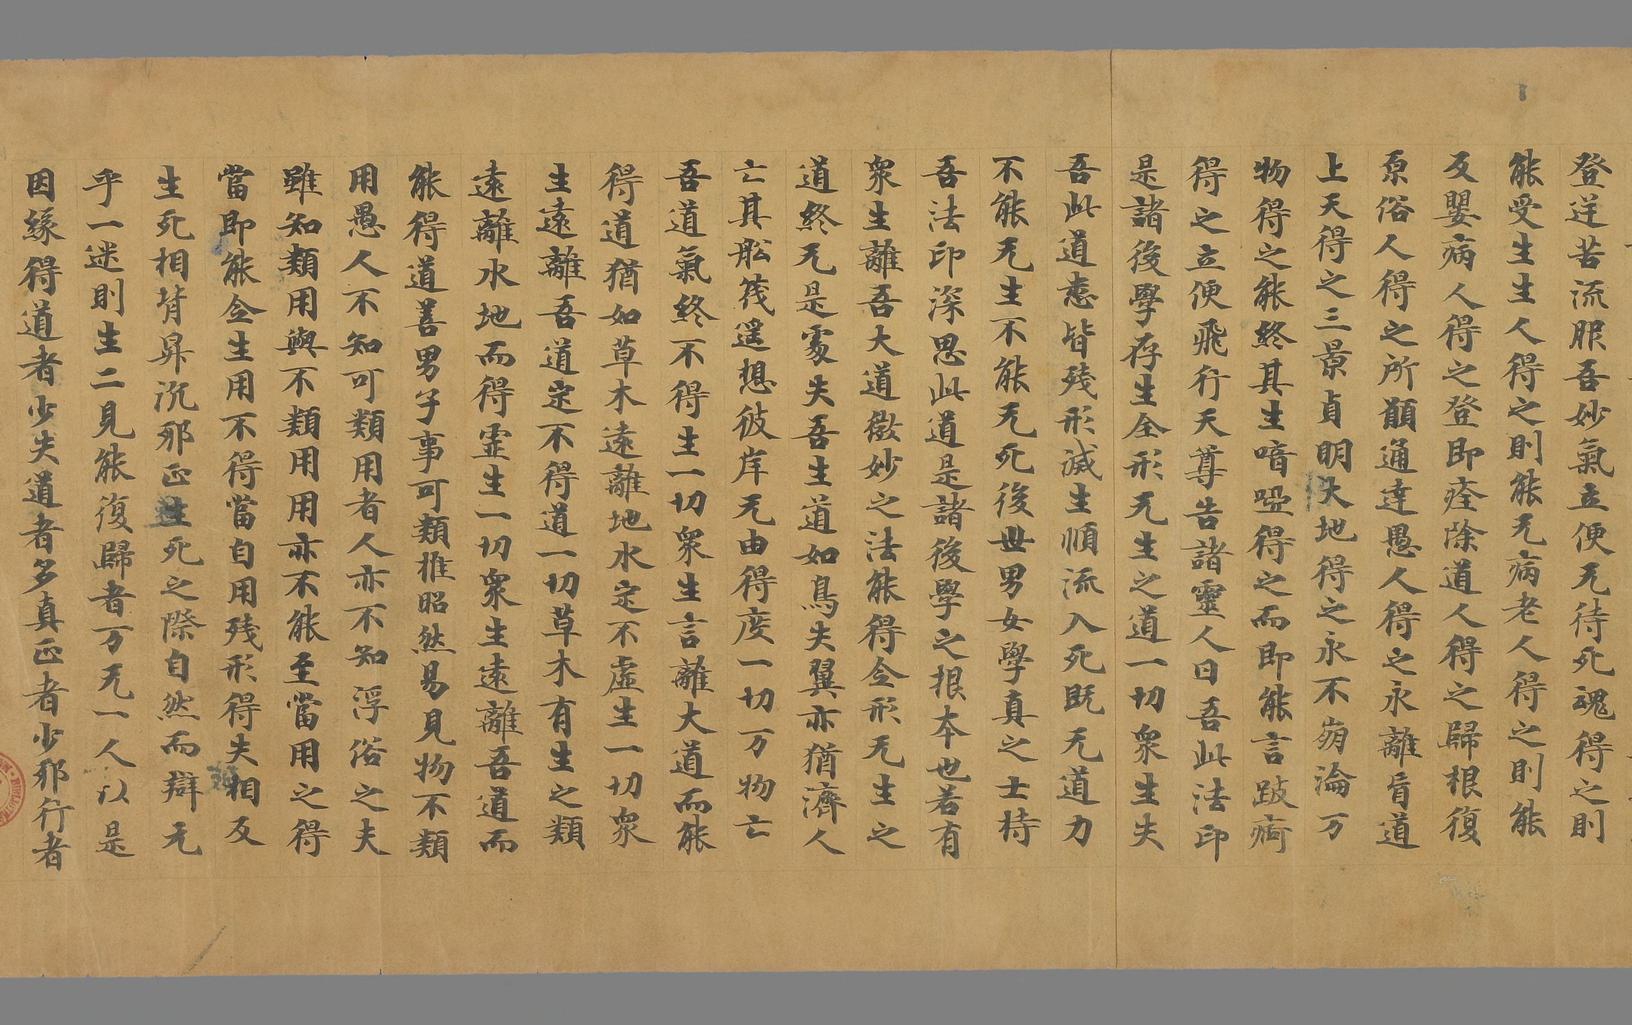 登迷苦流服吾妙氣立便无待死魂得之則
能受生生人得之則能无病老人得之則能
反嬰病人得之登即痊除道人得之歸根復
原俗人得之所顚通達愚人得之永離盲道
上天得之三景貞明大地得之永不崩淪万
物得之能終其生喑啞得之而即能言跛痾
得之立便飛行天尊告諸靈人曰吾此法印
是諸後學存生全形无生之道一切衆生失
吾此道悉皆殘形滅生順流入死既无道力
不能无生不能无死後世男女學真之士持
吾法印深思此道是諸後學之根本也若有
衆生離吾大道微妙之法能得全形无生之
道終无是處失吾生道如鳥失翼亦猶濟人
亡其舩筏遥想彼岸无由得度一切万物亡
吾道氣終不得生一切衆生言離大道而能
得道猶如草木遠離地水定不虛生一切衆
生遠離吾道定不得道一切草木有生之類
遠離水地而得靈生一切衆生遠離吾道而
能得道善男子事可類推昭然易見物不類
用愚人不知可類用者人亦不知浮俗之夫
雖知類用與不類用用亦不能至當用之得
當即能令生用不得當自用殘形得失相反
生死相背昇沉邪正生死之際自然而辯无
乎一迷則生二見能復歸者万无一人以是
因緣得道者少失道者多真正者少邪行者